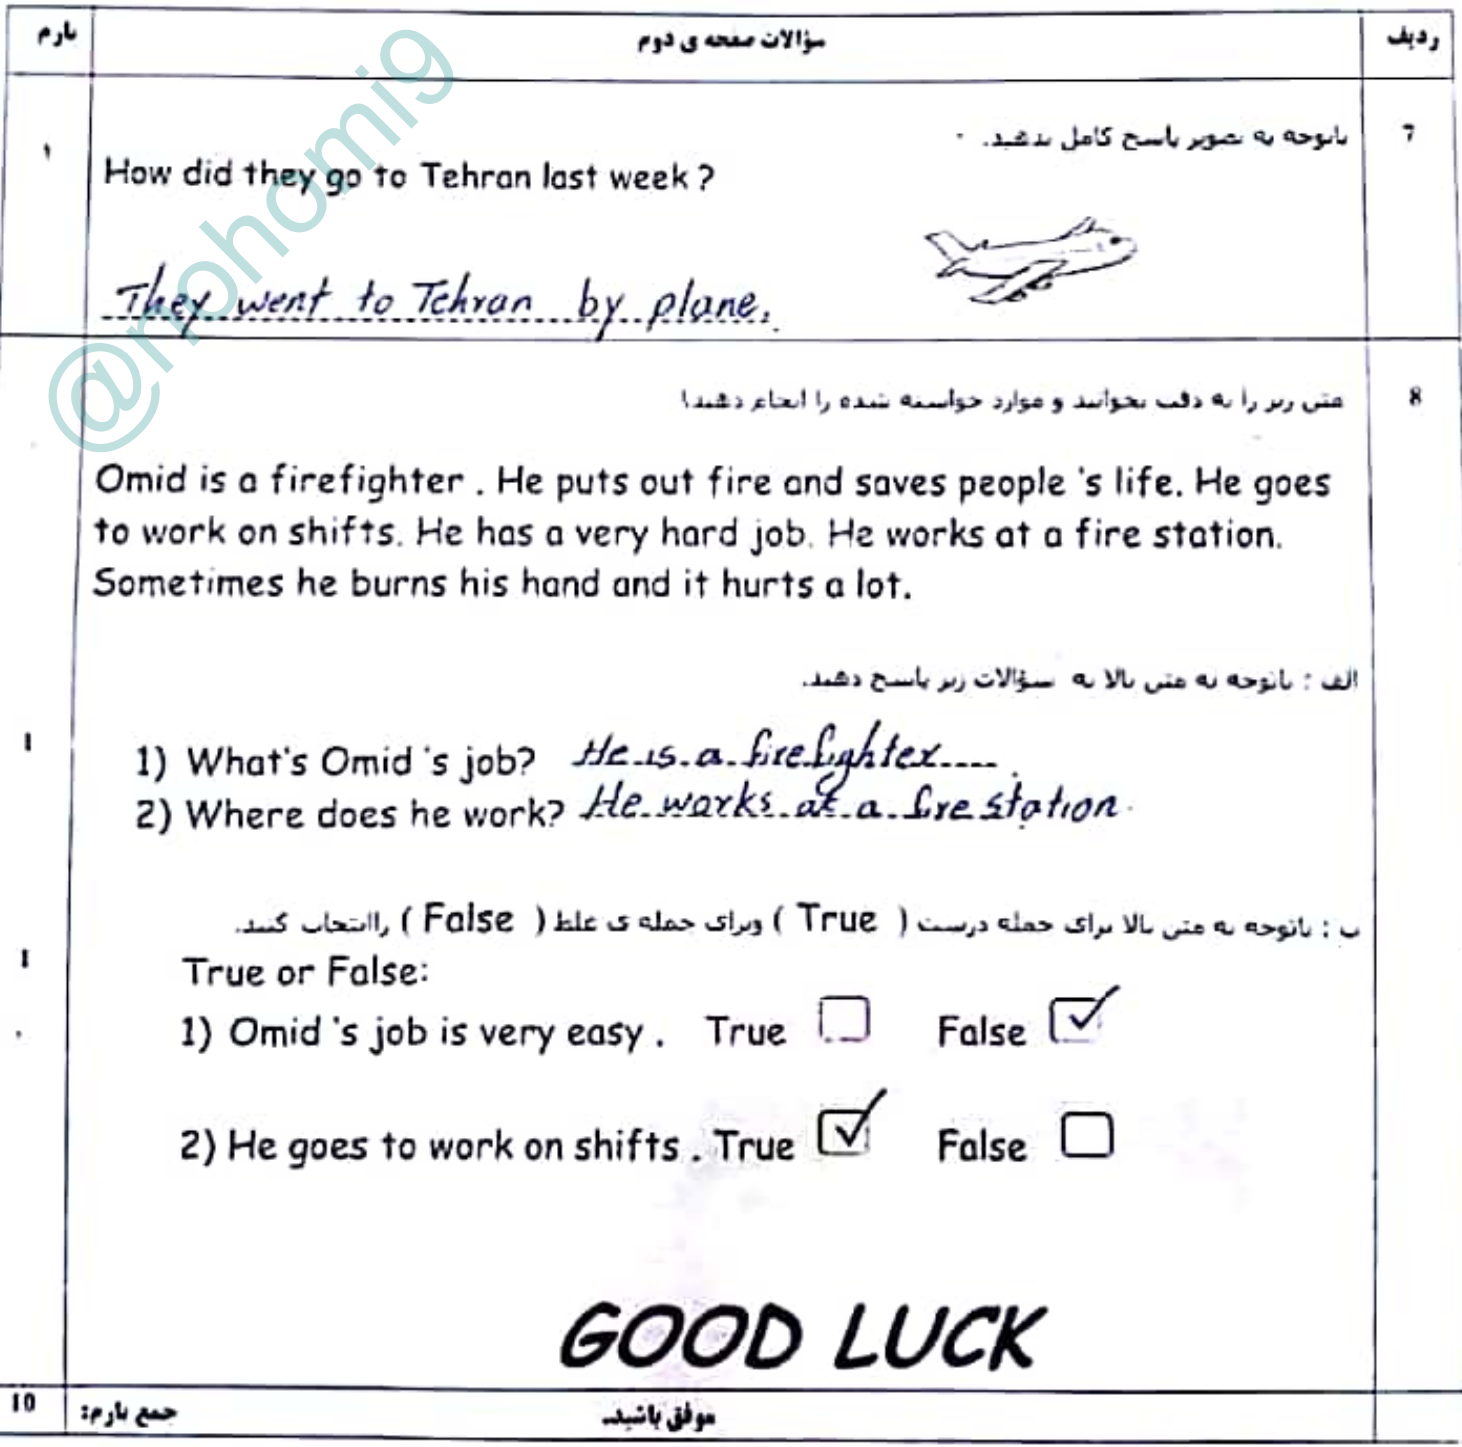 ردیف سؤالات صفحه ی دوم بارم
7 باتوجه به تصویر پاسخ کامل بدهید. ۱
How did they go to Tehran last week ?
They went to Tehran by plane.
8 متن زیر را به دقت بخوانید و موارد خواسته شده را انجام دهید!
Omid is a firefighter . He puts out fire and saves people 's life. He goes
to work on shifts. He has a very hard job. He works at a fire station.
Sometimes he burns his hand and it hurts a lot.
الف : باتوجه به متن بالا به سؤالات زیر پاسخ دهید.
1
1) What's Omid 's job? He is a firefighter
2) Where does he work? He works at a fire station.
ب : باتوجه به متن بالا برای جمله درست ( True ) وبرای جمله ی غلط ( False ) راانتخاب کنید.
1
True or False:
1) Omid 's job is very easy . True False
2) He goes to work on shifts . True False
GOOD LUCK
موفق باشید. جمع بارم: 10
@nohomi9